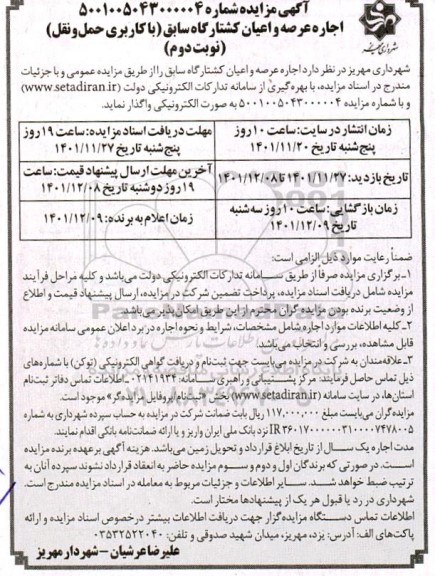 آگهی مزایده شماره ۵۰۰۱۰۰۵۰۴۳۰۰۰۰۰۴
اجاره عرصه و اعیان کشتارگاه سابق (با کاربری حمل و نقل)
(نوبت دوم)
شهرداری مهریز
شهرداری مهریز در نظر دارد اجاره عرصه و اعیان کشتارگاه سابق را از طریق مزایده عمومی و با جزئیات
مندرج در اسناد مزایده، با بهره‌گیری از سامانه تدارکات الکترونیکی دولت (www.setadiran.ir)
و با شماره مزایده ۵۰۰۱۰۰۵۰۴۳۰۰۰۰۰۴ به صورت الکترونیکی واگذار نماید.
زمان انتشار در سایت: ساعت ۱۰ روز
پنج‌شنبه تاریخ ۱۴۰۱/۱۱/۲۰
مهلت دریافت اسناد مزایده: ساعت ۱۹ روز
پنج‌شنبه تاریخ ۱۴۰۱/۱۱/۲۷
تاریخ بازدید: ۱۴۰۱/۱۱/۲۷ تا ۱۴۰۱/۱۲/۰۸
آخرین مهلت ارسال پیشنهاد قیمت: ساعت
۱۹ روز دوشنبه تاریخ ۱۴۰۱/۱۲/۰۸
زمان بازگشایی: ساعت ۱۰ روز سه‌شنبه
تاریخ ۱۴۰۱/۱۲/۰۹
زمان اعلام به برنده: ۱۴۰۱/۱۲/۰۹
ضمناً رعایت موارد ذیل الزامی است:
۱- برگزاری مزایده صرفا از طریق سامانه تدارکات الکترونیکی دولت می‌باشد و کلیه مراحل فرآیند
مزایده شامل دریافت اسناد مزایده، پرداخت تضمین شرکت در مزایده، ارسال پیشنهاد قیمت و اطلاع
از وضعیت برنده بودن مزایده گران محترم از این طریق امکان‌پذیر می‌باشد.
۲- کلیه اطلاعات موارد اجاره شامل مشخصات، شرایط و نحوه اجاره در برد اعلان عمومی سامانه مزایده
قابل مشاهده، بررسی و انتخاب می‌باشد.
۳- علاقه‌مندان به شرکت در مزایده می‌بایست جهت ثبت‌نام و دریافت گواهی الکترونیکی (توکن) با شماره‌های
ذیل تماس حاصل فرمایند: مرکز پشتیبانی و راهبری سامانه: ۰۲۱۴۱۹۳۴ - اطلاعات تماس دفاتر ثبت‌نام
استان‌ها، در سایت سامانه (www.setadiran.ir) بخش «ثبت‌نام/پروفایل مزایده‌گر» موجود است.
مزایده گران می‌بایست مبلغ ۱۱۷,۰۰۰,۰۰۰ ریال بابت ضمانت شرکت در مزایده به حساب سپرده شهرداری به شماره
نزد بانک ملی ایران واریز و یا ارائه ضمانت‌نامه بانکی اقدام نمایند.
مدت اجاره یک سال از تاریخ ابلاغ قرارداد و تحویل زمین می‌باشد. هزینه آگهی برعهده برنده مزایده
است. در صورتی که برندگان اول و دوم و سوم مزایده حاضر به انعقاد قرارداد نشوند سپرده آنان به
ترتیب ضبط خواهد شد. سایر اطلاعات و جزئیات مربوط به معامله در اسناد مزایده مندرج است.
شهرداری در رد یا قبول هر یک از پیشنهادها مختار است.
اطلاعات تماس دستگاه مزایده‌گزار جهت دریافت اطلاعات بیشتر درخصوص اسناد مزایده و ارائه
پاکت‌های الف: آدرس: یزد، مهریز، میدان شهید صدوقی و تلفن: ۰۳۵۳۲۵۲۲۰۴۰
علیرضا عرشیان - شهردار مهریز